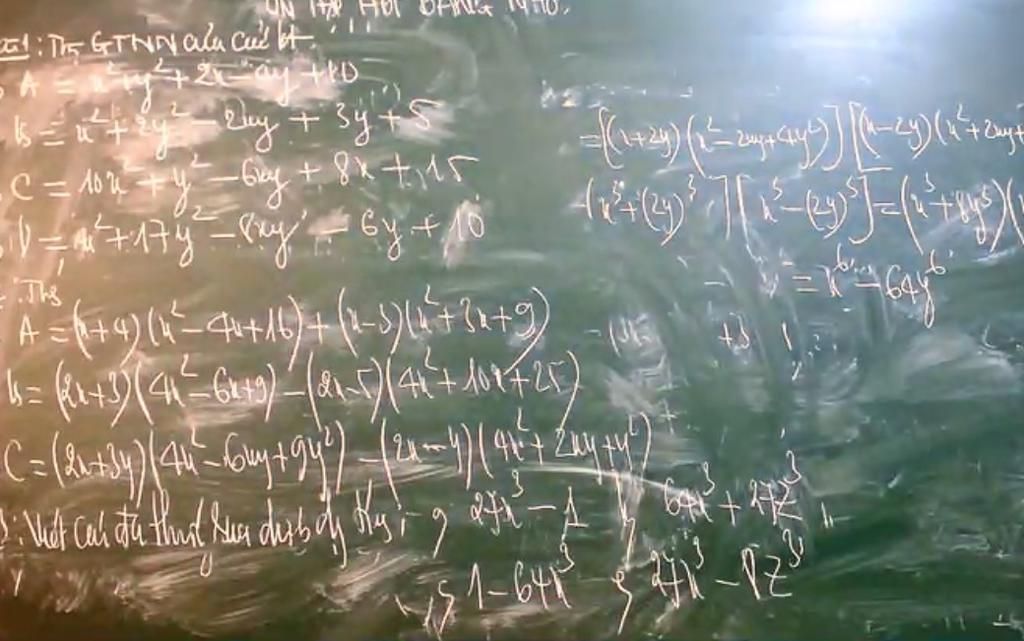 ÔN TẬP HĐT ĐÁNG NHỚ.
Bài 1: Tìm GTNN của các bt.
A = x² + y² + 2x - 4y + 10
B = x² + 2y² - 2xy + 3y + 5
C = 10x² + y² - 6xy + 8x + 15
D = x² + 17y² - 8xy - 6y + 10
A = (x+4)(x² - 4x + 16) + (x-3)(x² + 3x + 9)
B = (2x+3)(4x² - 6x + 9) - (2x-5)(4x² + 10x + 25)
C = (2x+3y)(4x² - 6xy + 9y²) - (2x-y)(4x² + 2xy + y²)
: Viết các đa thức sau dưới dạng 27x³ - 1 64x³ + 27z³
1 - 64x³ 27x³ - 8z³
= [(x+2y)(x² - 2xy + 4y²)][(x-2y)(x² + 2xy +
[x³ + (2y)³][x³ - (2y)³] = (x³ + 8y³)(
= x⁶ - 64y⁶